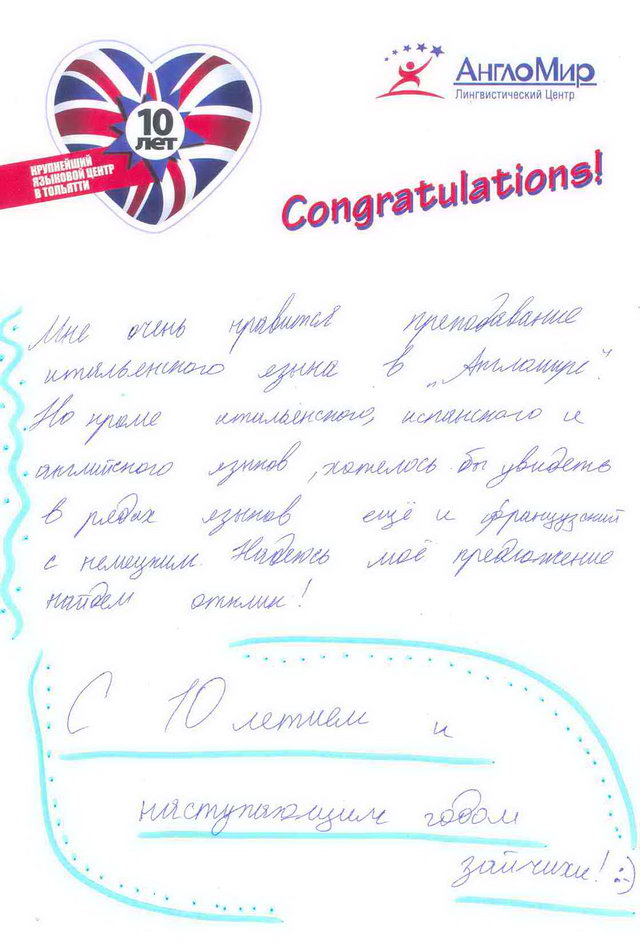 10
лет
КРУПНЕЙШИЙ
ЯЗЫКОВОЙ ЦЕНТР
В ТОЛЬЯТТИ
АнглоМир
Лингвистический Центр
Congratulations!
Мне очень нравится преподавание
итальенского языка в „Англомире".
Но кроме итальенского, испанского и
английского языков, хотелось бы увидеть
в рядах языков ещё и французский
с немецким. Надеюсь моё предложение
найдет отклик!
С 10 летием и
наступающим годом
зайчихи! :-)